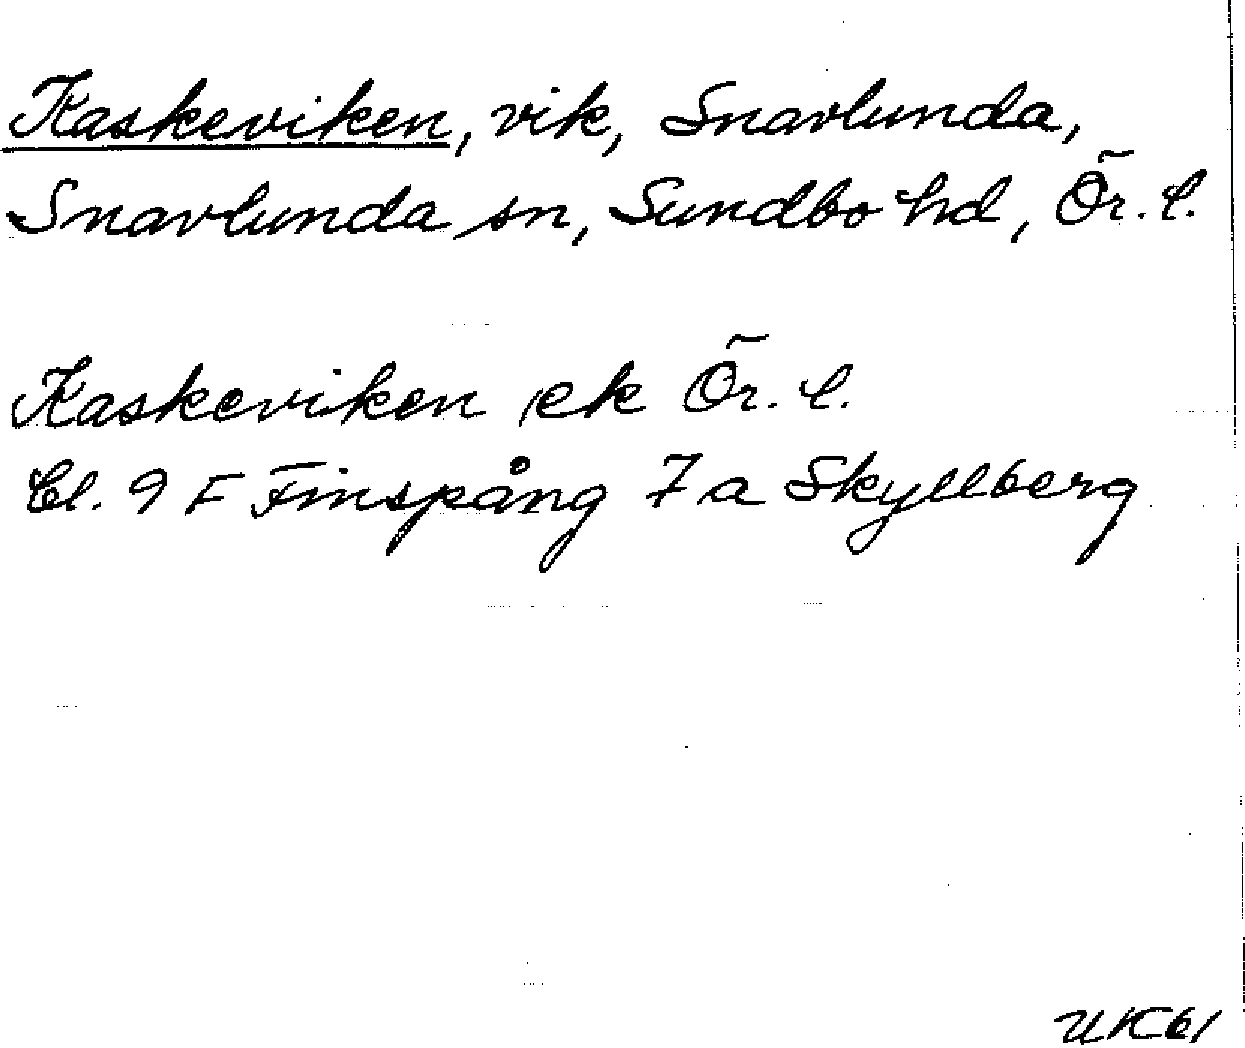 Kaskeviken, vik, Snavlunda,
Snavlunda sn, Sundbo hd, Ör. l.
Kaskeviken ek Ör. l.
Bl. 9 F Finspång 7 a Skyllberg
UK61